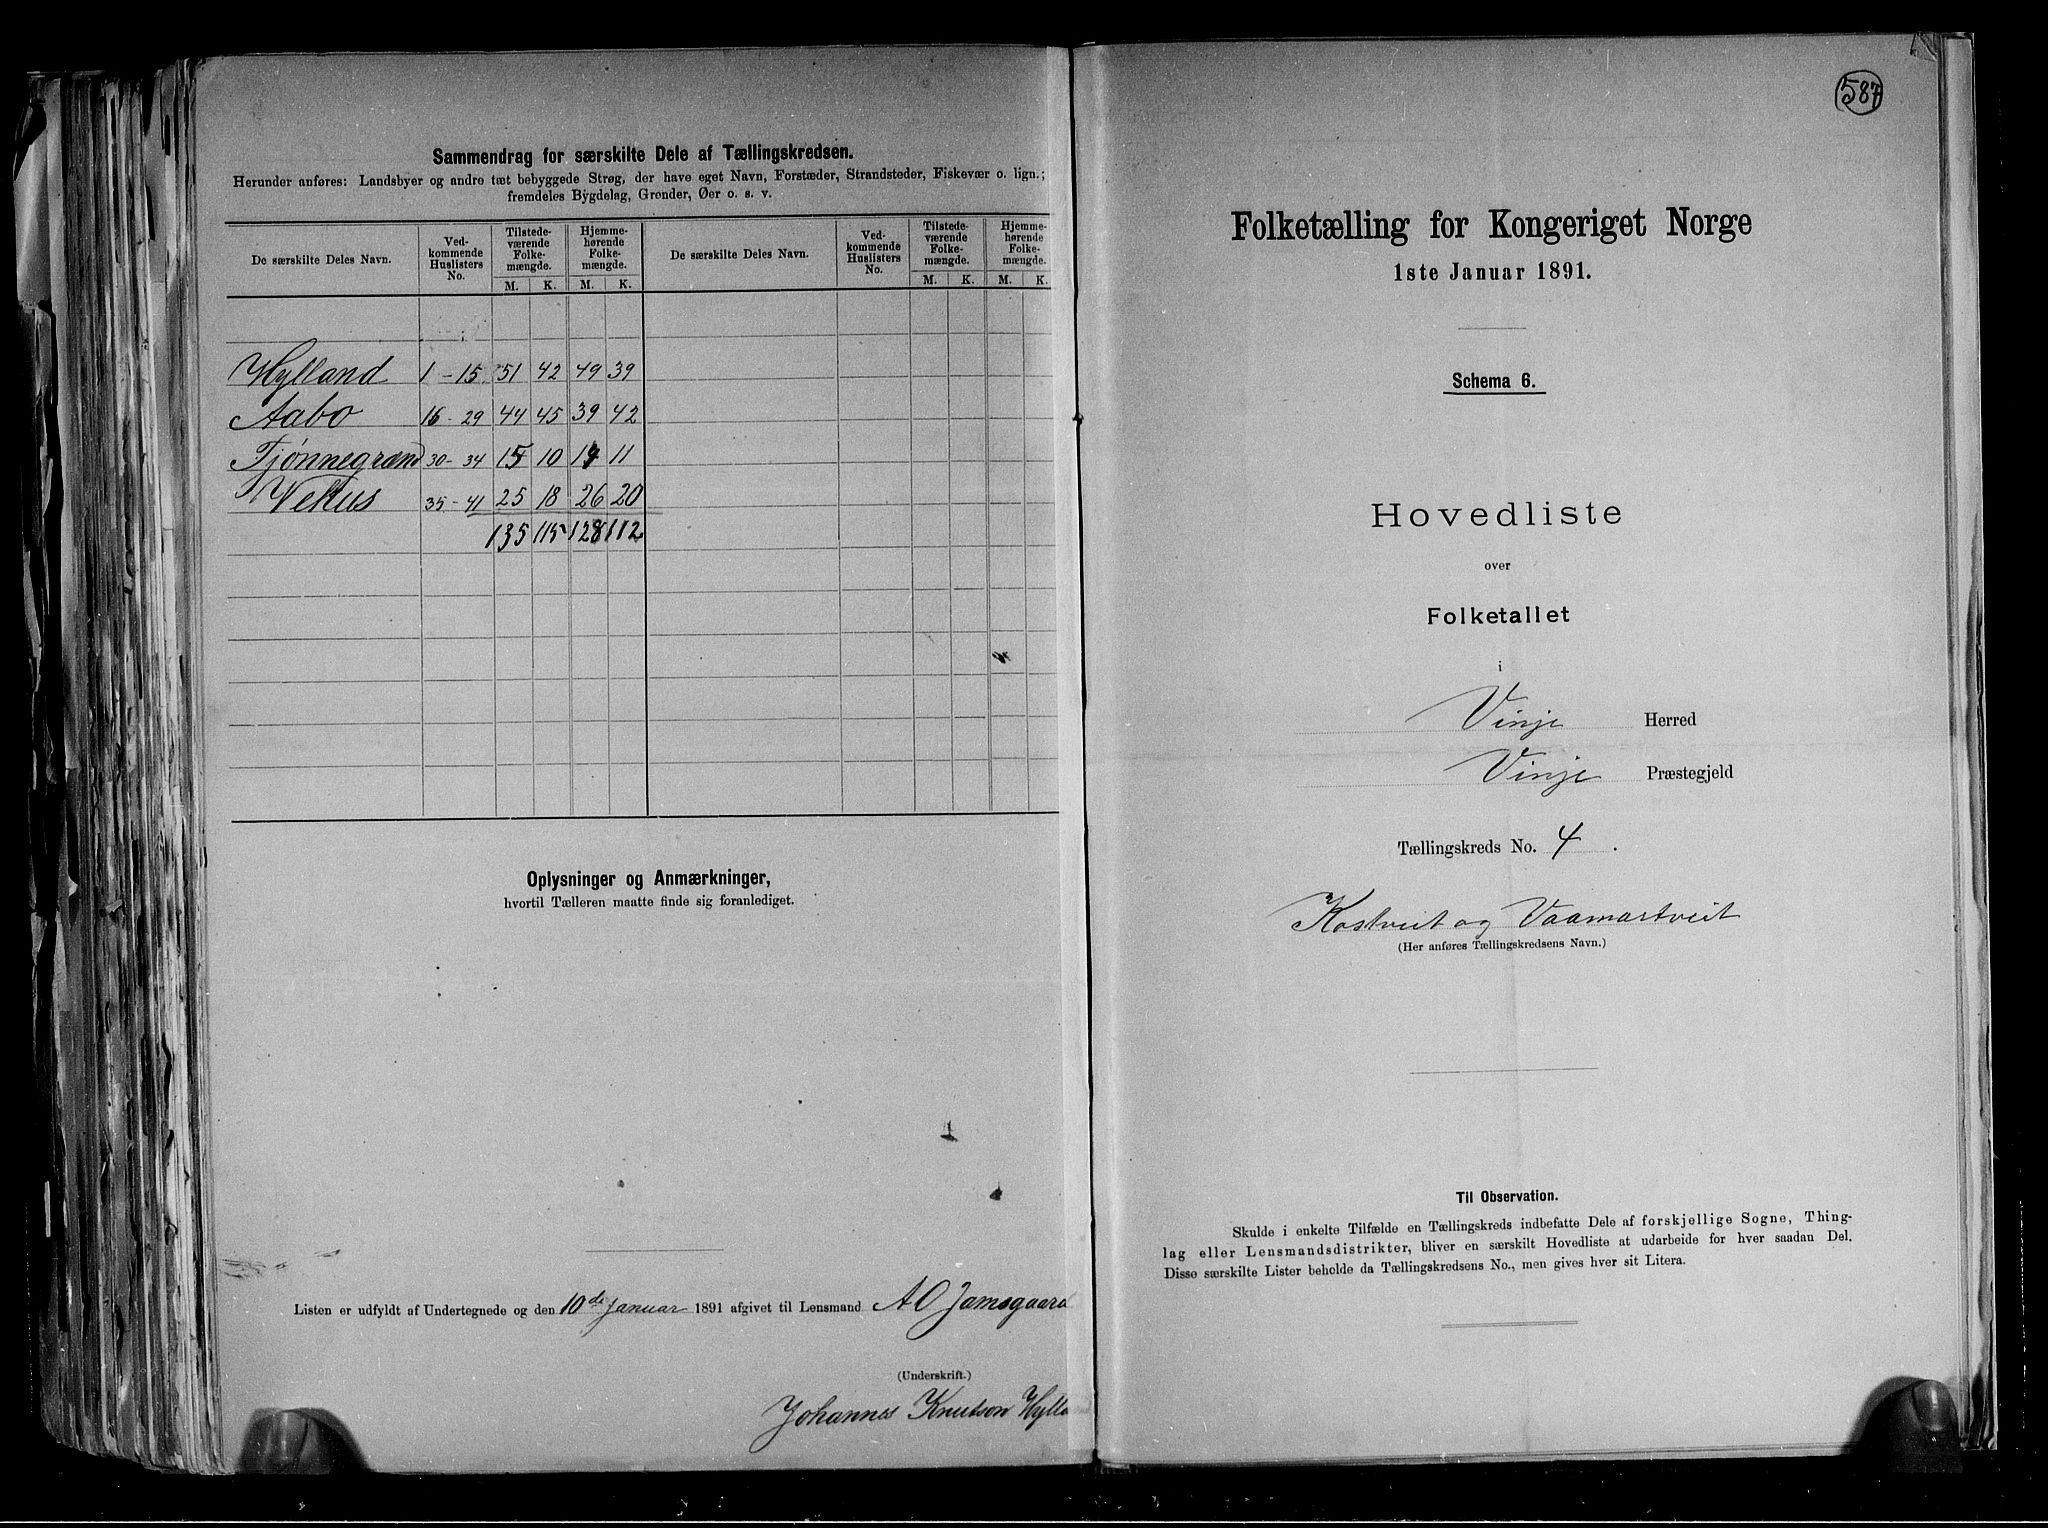 Sammendrag for særskilte Dele af Tællingskredsen.
Herunder anføres: Landsbyer og andre tæt bebyggede Strøg, der have eget Navn, Forstæder, Strandsteder, Fiskevær o. lign.;
fremdeles Bygdelag, Grender, Øer o. s. v.
De særskilte Deles Navn. Ved-kommende Huslisters No. Tilstede-værende Folke-mængde. Hjemme-hørende Folke-mængde. De særskilte Deles Navn. Ved-kommende Huslisters No. Tilstede-værende Folke-mængde. Hjemme-hørende Folke-mængde.
M. K. M. K. M. K. M. K.
Hylland 1 - 15 51 42 49 39
Aabo 16 - 29 44 45 39 42
Tjønnegrænd 30 - 34 15 10 14 11
Vehus 35 - 41 25 18 26 20
135 115 128 112
Oplysninger og Anmærkninger,
hvortil Tælleren maatte finde sig foranlediget.
Listen er udfyldt af Undertegnede og den 10de Januar 1891 afgivet til Lensmand A O Jamsgaard
(Underskrift.)
Johannes Knutson Hylland
587
Folketælling for Kongeriget Norge
1ste Januar 1891.
Schema 6.
Hovedliste
over
Folketallet
i
Vinje Herred
Vinje Præstegjeld
Tællingskreds No. 4.
Kostveit og Vaamartveit
(Her anføres Tællingskredsens Navn.)
Til Observation.
Skulde i enkelte Tilfælde en Tællingskreds indbefatte Dele af forskjellige Sogne, Thing-
lag eller Lensmandsdistrikter, bliver en særskilt Hovedliste at udarbeide for hver saadan Del.
Disse særskilte Lister beholde da Tællingskredsens No., men gives hver sit Litera.